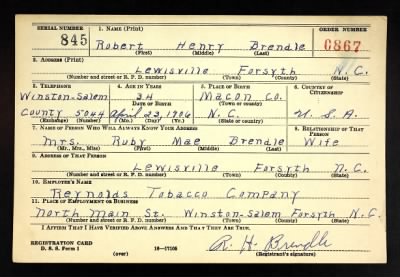 SERIAL NUMBER
1. NAME (Print)
ORDER NUMBER
845
Robert Henry Brendle
0867
(First) (Middle) (Last)
2. ADDRESS (Print)
Lewisville Forsyth N.C.
(Number and street or R. F. D. number) (Town) (County) (State)
3. TELEPHONE
4. AGE IN YEARS
5. PLACE OF BIRTH
6. COUNTRY OF CITIZENSHIP
Winston-Salem
34
Macon Co.
DATE OF BIRTH
(Town or county)
County 5044 April 23, 1906 N.C. U.S.A.
(Exchange) (Number) (Mo.) (Day) (Yr.) (State or country)
7. NAME OF PERSON WHO WILL ALWAYS KNOW YOUR ADDRESS
8. RELATIONSHIP OF THAT PERSON
Mrs. Ruby Mae Brendle Wife
(Mr., Mrs., Miss) (First) (Middle) (Last)
9. ADDRESS OF THAT PERSON
Lewisville Forsyth N.C.
(Number and street or R. F. D. number) (Town) (County) (State)
10. EMPLOYER'S NAME
Reynolds Tobacco Company
11. PLACE OF EMPLOYMENT OR BUSINESS
North Main St. Winston-Salem Forsyth N.C.
(Number and street or R. F. D. number) (Town) (County) (State)
I AFFIRM THAT I HAVE VERIFIED ABOVE ANSWERS AND THAT THEY ARE TRUE.
REGISTRATION CARD
D. S. S. Form 1
16—17105
(over)
R. H. Brendle
(Registrant's signature)